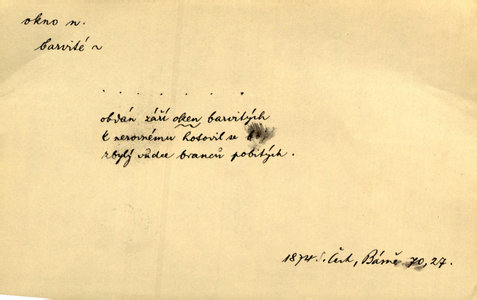 okno n.
barvité ~
. . . . . . .
obdán září oken barvitých
k nerovnému hotovil se
zbylý vůdce branců pobitých.
1874 S. Čech, Básně 70, 27.